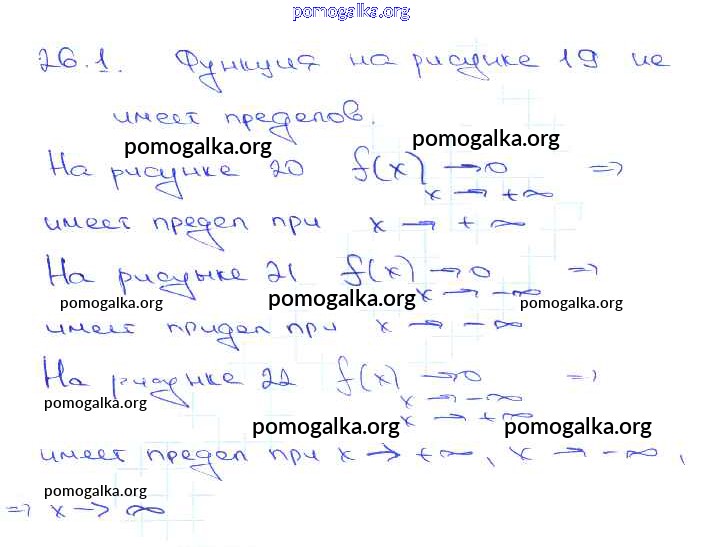 pomogalka.org
26.1. Функция на рисунке 19 не
имеет пределов.
pomogalka.org pomogalka.org
На рисунке 20 f(x) → 0 =>
x → +∞
имеет предел при x → +∞
На рисунке 21 f(x) → 0 =>
x → -∞
pomogalka.org pomogalka.org pomogalka.org
имеет придел при x → -∞
На рисунке 22 f(x) → 0 =>
x → -∞
pomogalka.org
x → +∞
pomogalka.org pomogalka.org
имеет предел при x → +∞, x → -∞,
pomogalka.org
=> x → ∞